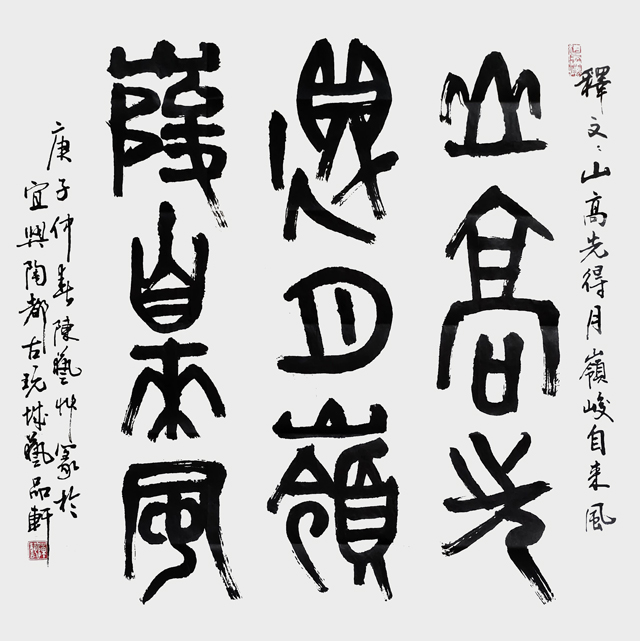 釋文：山高先得月嶺峻自来風
山高先
得月嶺
峻自來風
庚子仲春陳藝艸篆於
宜興陶都古玩城藝品軒